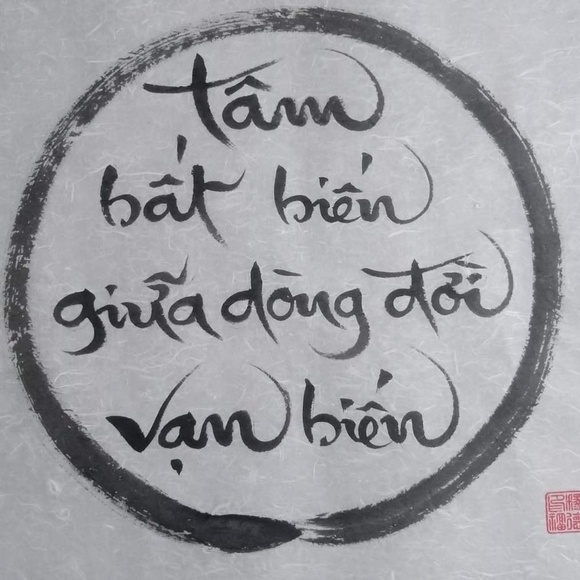 tâm
bất biến
giữa dòng đời
vạn biến